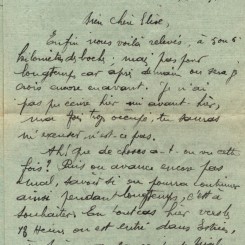 bien chère Elise,
Enfin nous voilà relevés, à 5 ou 6
kilomètres des boches, mais pas pour
longtemps car après demain on sera
crois encore en avant. Je n'ai
pas pu écrire hier ni avant-hier,
ma fois trop occupé, tu sauras
m'excuser n'est-ce pas.
Ah! que de choses a-t-on vu cette
fois? Puis on avance encore pas
mal, savoir si on pourra continuer
ainsi pendant longtemps, c'est à
souhaiter. En tout cas hier vers
18 heures on est entré dans